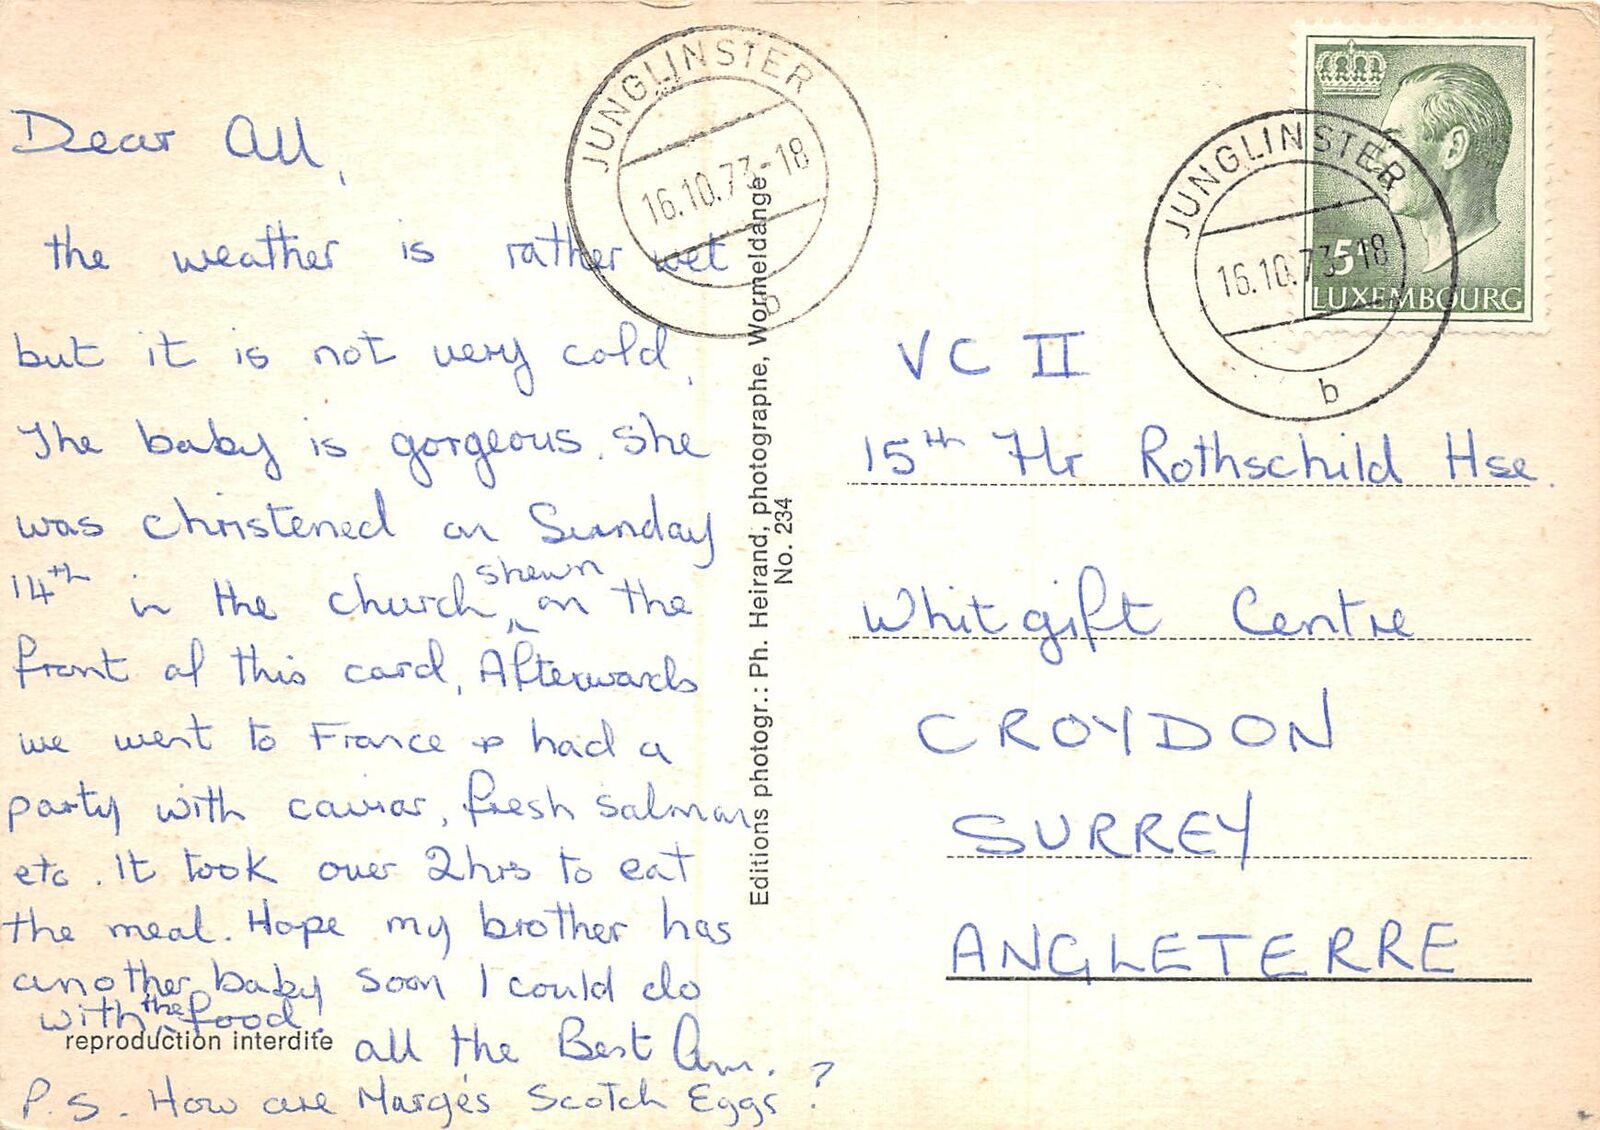 Dear All,
the weather is rather wet
but it is not very cold.
The baby is gorgeous. She
was christened on Sunday
14th in the church shewn on the
front of this card. Afterwards
we went to France & had a
party with caviar, fresh salmon
etc. It took over 2hrs to eat
the meal. Hope my brother has
another baby soon I could do
with the food.
all the Best
P.S. How are Marge's Scotch Eggs?
reproduction interdite
Editions photogr.: Ph. Heirand, photographe, Wormeldange
No. 234
JUNGLINSTER
16.10.73-18
b
JUNGLINSTER
16.10.73-18
b
5F
LUXEMBOURG
VC II
15th Flr Rothschild Hse.
Whitgift Centre
CROYDON
SURREY
ANGLETERRE